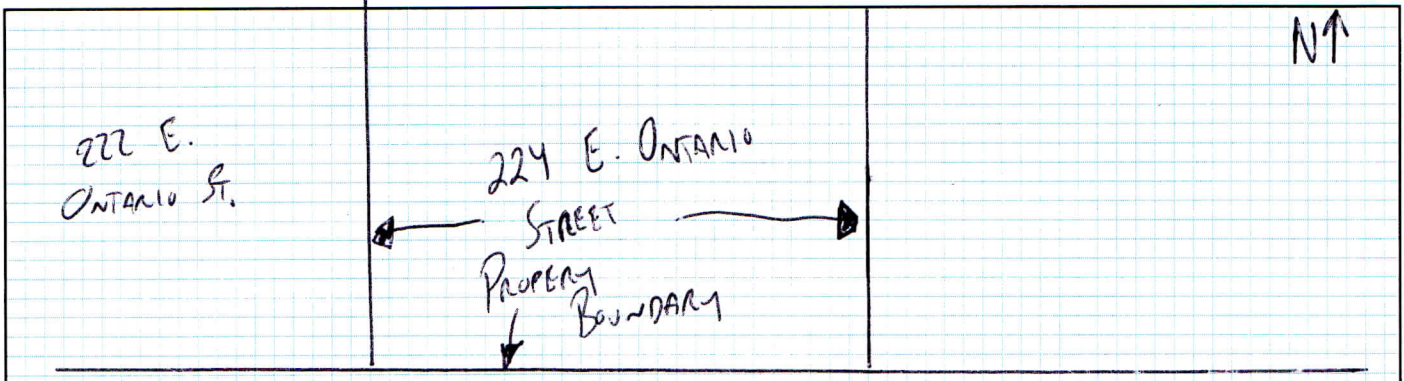 N↑
222 E.
ONTARIO ST.
224 E. ONTARIO
STREET
PROPERY
BOUNDARY